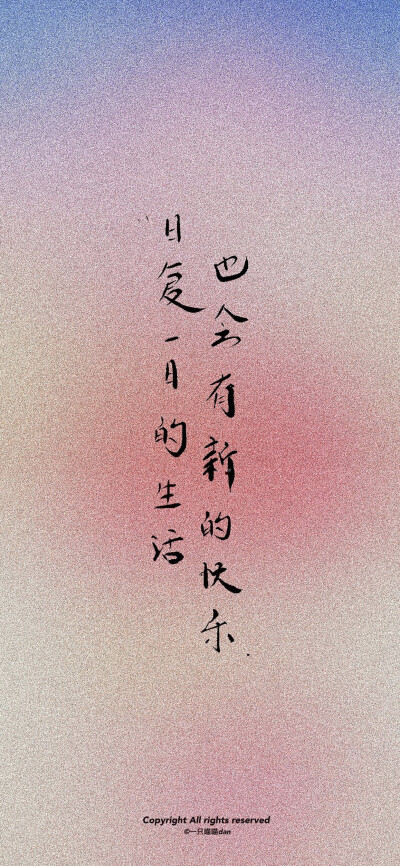 “日复一日的生活
也会有新的快乐.
Copyright All rights reserved
©一只喵喵dan